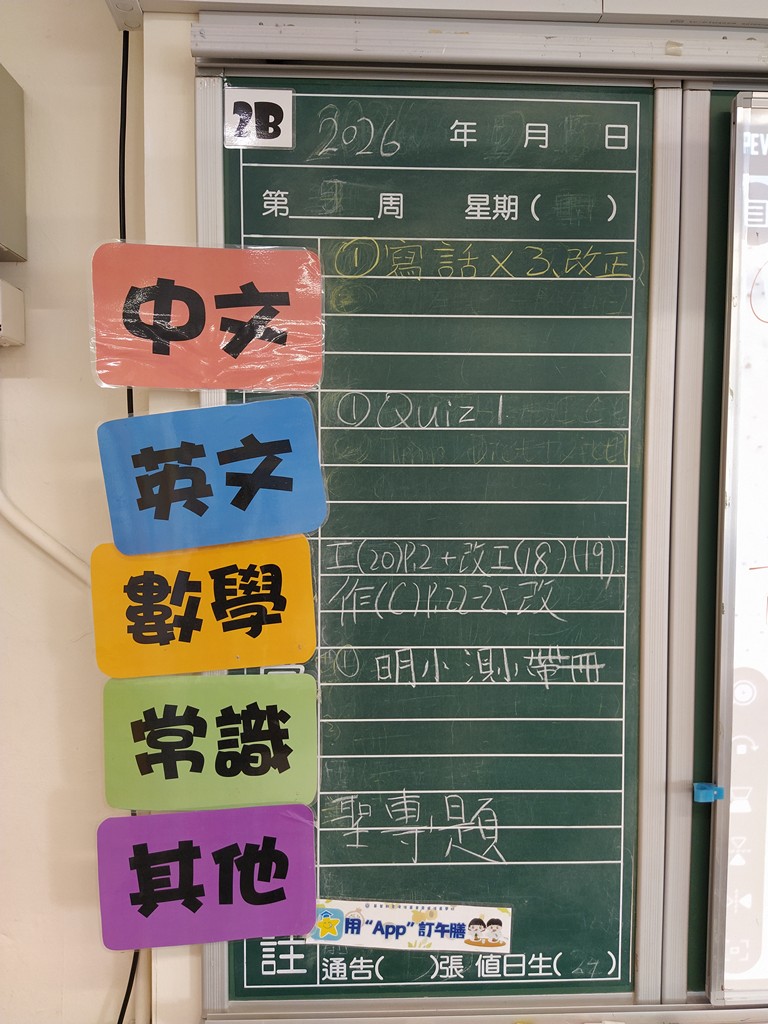 2B
2026 年 月 日
第 周 星期( )
中文
①寫話×3、改正
英文
①Quiz 1
數學
工(20)P.2+改工(18)(19)
作(C)P.22-25改
常識
①明小測 小帶冊
其他
聖專題
用“App”訂午膳
註
通告( )張 值日生(24)